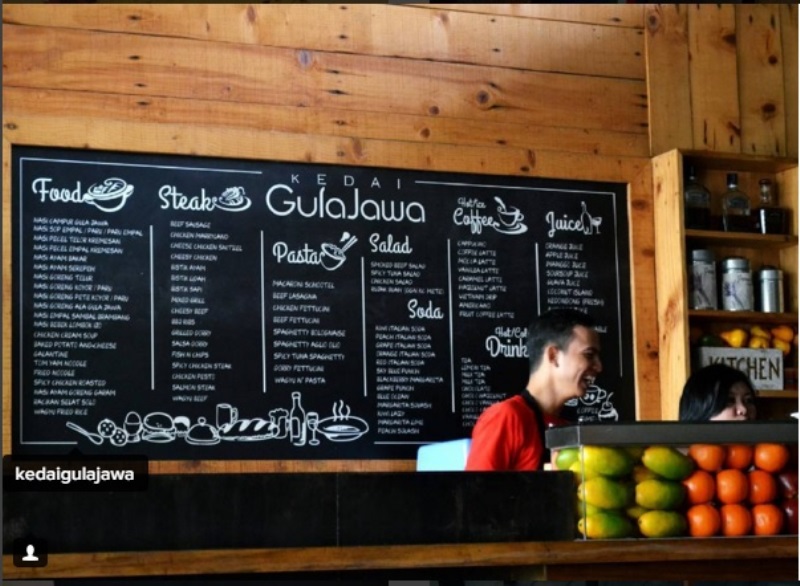 KEDAI
GulaJawa
Food
NASI CAMPUR GULA JAWA
NASI SOP EMPAL / PARU / PARU EMPAL
NASI PECEL TELUR KREMESAN
NASI PECEL EMPAL KREMESAN
NASI AYAM BAKAR
NASI AYAM SEREPEH
NASI GORENG TELUR
NASI GORENG KOYOR / PARU
NASI GORENG PETE KOYOR / PARU
NASI GORENG ALA GULA JAWA
NASI EMPAL SAMBAL BRAMBANG
NASI BEBEK LOMBOK IJO
CHICKEN CREAM SOUP
BAKED POTATO AND CHEESE
GALANTINE
TOM YAM NOODLE
FRIED NOODLE
SPICY CHICKEN ROASTED
NASI AYAM GORENG GARAM
WAGYU FRIED RICE
Steak
BEEF SAUSAGE
CHICKEN MARYLAND
CHEESE CHICKEN SNITZEL
CHEESY CHICKEN
BISTIK AYAM
BISTIK LIDAH
BISTIK SAPI
MIXED GRILL
CHEESY BEEF
BBQ RIBS
GRILLED DORRY
SALSA DORRY
FISH N CHIPS
SPICY CHICKEN STEAK
CHICKEN PESTO
SALMON STEAK
WAGYU BEEF
Pasta
MACARONI SCHOOTEL
BEEF LASAGNA
CHICKEN FETTUCINI
BEEF FETTUCINI
SPAGHETTI BOLOGNAISE
SPAGHETTI AGLIO OLIO
SPICY TUNA SPAGHETTI
DORRY FETTUCINI
WAGYU N' PASTA
Salad
SMOKED BEEF SALAD
SPICY TUNA SALAD
CHICKEN SALAD
Soda
KIWI ITALIAN SODA
PEACH ITALIAN SODA
GRAPE ITALIAN SODA
ORANGE ITALIAN SODA
RED ITALIAN SODA
SKY BLUE PUNCH
BLACKBERRY MARGARITA
GRAPE PUNCH
BLUE OCEAN
MARGARITA SQUASH
KIWI LADY
MARGARITA LYCI
PEACH SQUASH
Hot/Ice
Coffee
CAPPUCINO
COFFEE LATTE
MOCCA LATTE
VANILLA LATTE
CARAMEL LATTE
HAZELNUT LATTE
VIETNAM DRIP
FRUIT COFFEE LATTE
Hot/Cold
Drink
TEA
LEMON TEA
MILK TEA
Juice
ORANGE JUICE
APPLE JUICE
MANGGO JUICE
SOURSOUP JUICE
GUAVA JUICE
COCONUT ISLAND
KEDONDONG (FRESH)
KITCHEN
COFFEE
kedaigulajawa